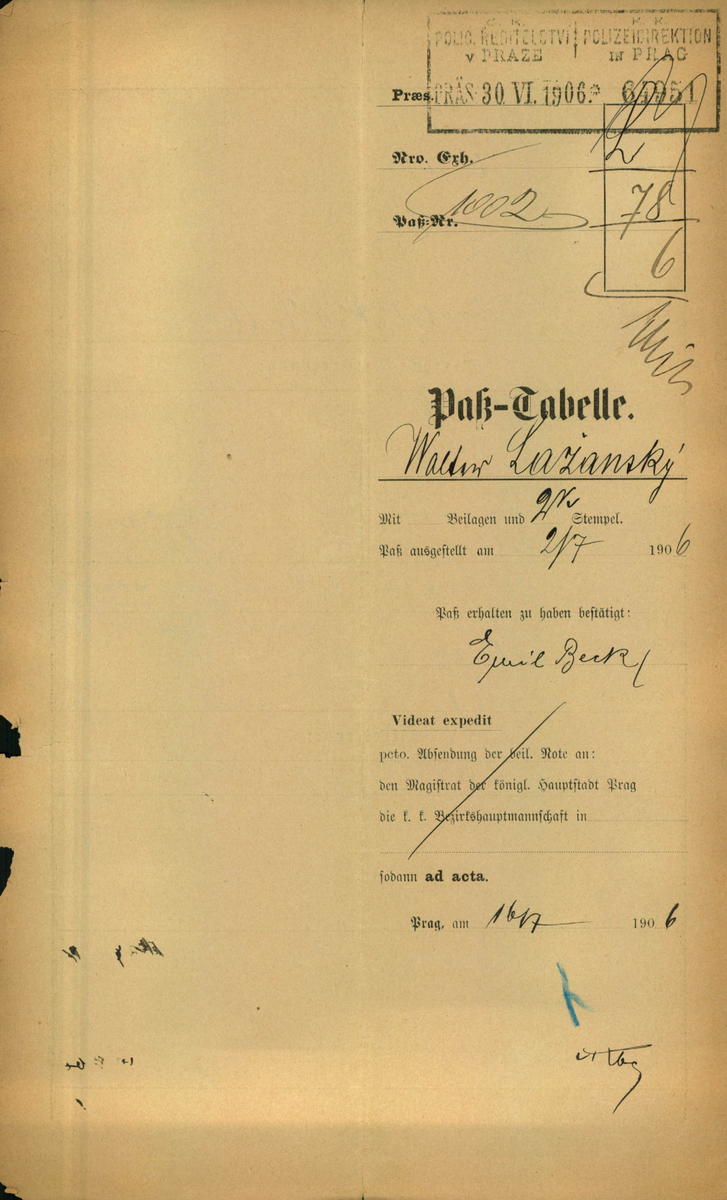 C. K. K. K.
POLIC. ŘEDITELSTVÍ POLIZEIDIREKTION
V PRAZE IN PRAG
Præs. PRÄS 30. VI. 1906. * 64951
Nro. Exh. L
Paß-Nr. 1002 78
6
Paß-Tabelle.
Walter Lažanský
Mit Beilagen und 2 K Stempel.
Paß ausgestellt am 2/7 1906
Paß erhalten zu haben bestätigt:
Emil Beck
Videat expedit
pcto. Absendung der beil. Note an:
den Magistrat der königl. Hauptstadt Prag
die k. k. Bezirkshauptmannschaft in
sodann ad acta.
Prag, am 16/7 1906